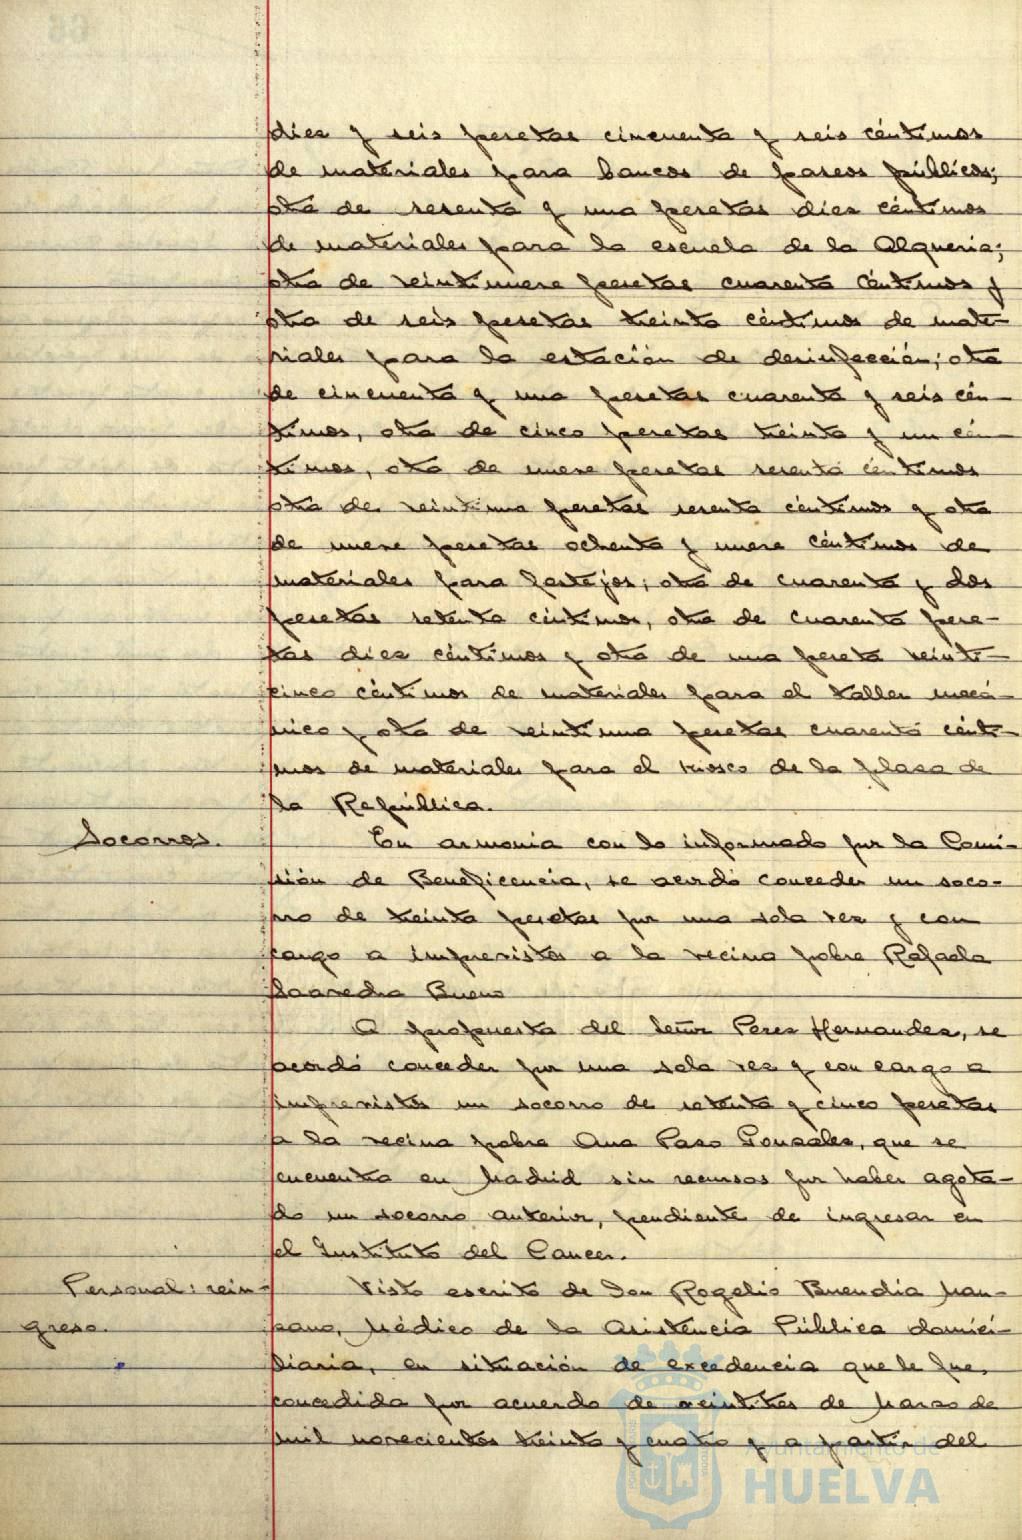 diez y seis pesetas cincuenta y seis céntimos
de materiales para bancos de paseos públicos;
otra de sesenta y una pesetas diez céntimos
de materiales para la escuela de la Alqueria;
otra de veintinueve pesetas cuarenta céntimos y
otra de seis pesetas treinta céntimos de mate-
riales para la estación de desinfección; otra
de cincuenta y una pesetas cuarenta y seis cén-
timos, otra de cinco pesetas treinta y un cén-
timos, otra de nueve pesetas sesenta céntimos
otra de veintiuna pesetas sesenta céntimos y otra
de nueve pesetas ochenta y nueve céntimos de
materiales para festejos; otra de cuarenta y dos
pesetas setenta céntimos, otra de cuarenta pese-
tas diez céntimos y otra de una peseta veinti-
cinco céntimos de materiales para el taller mecá-
nico y otra de veintiuna pesetas cuarenta cénti-
mos de materiales para el kiosco de la plaza de
la República.
Socorros.
En armonia con lo informado por la Comi-
sión de Beneficencia, se acordó conceder un soco-
rro de treinta pesetas por una sola vez y con
cargo a imprevistos a la vecina pobre Rafaela
Saavedra Bueno
A propuesta del Señor Perez Hernandez, se
acordó conceder por una sola vez y con cargo a
imprevistos un socorro de setenta y cinco pesetas
a la vecina pobre Ana Pazo Gonzáles, que se
encuentra en Madrid sin recursos por haber agota-
do un socorro anterior, pendiente de ingresar en
el Instituto del Cancer.
Personal: rein-
greso.
Visto escrito de Don Rogelio Buendia Man-
zano, Médico de la Asistencia Pública domici-
liaria, en situación de excedencia que le fue,
concedida por acuerdo de veintitres de Marzo de
mil novecientos treinta y cuatro y a partir del
Ayuntamiento de
HUELVA